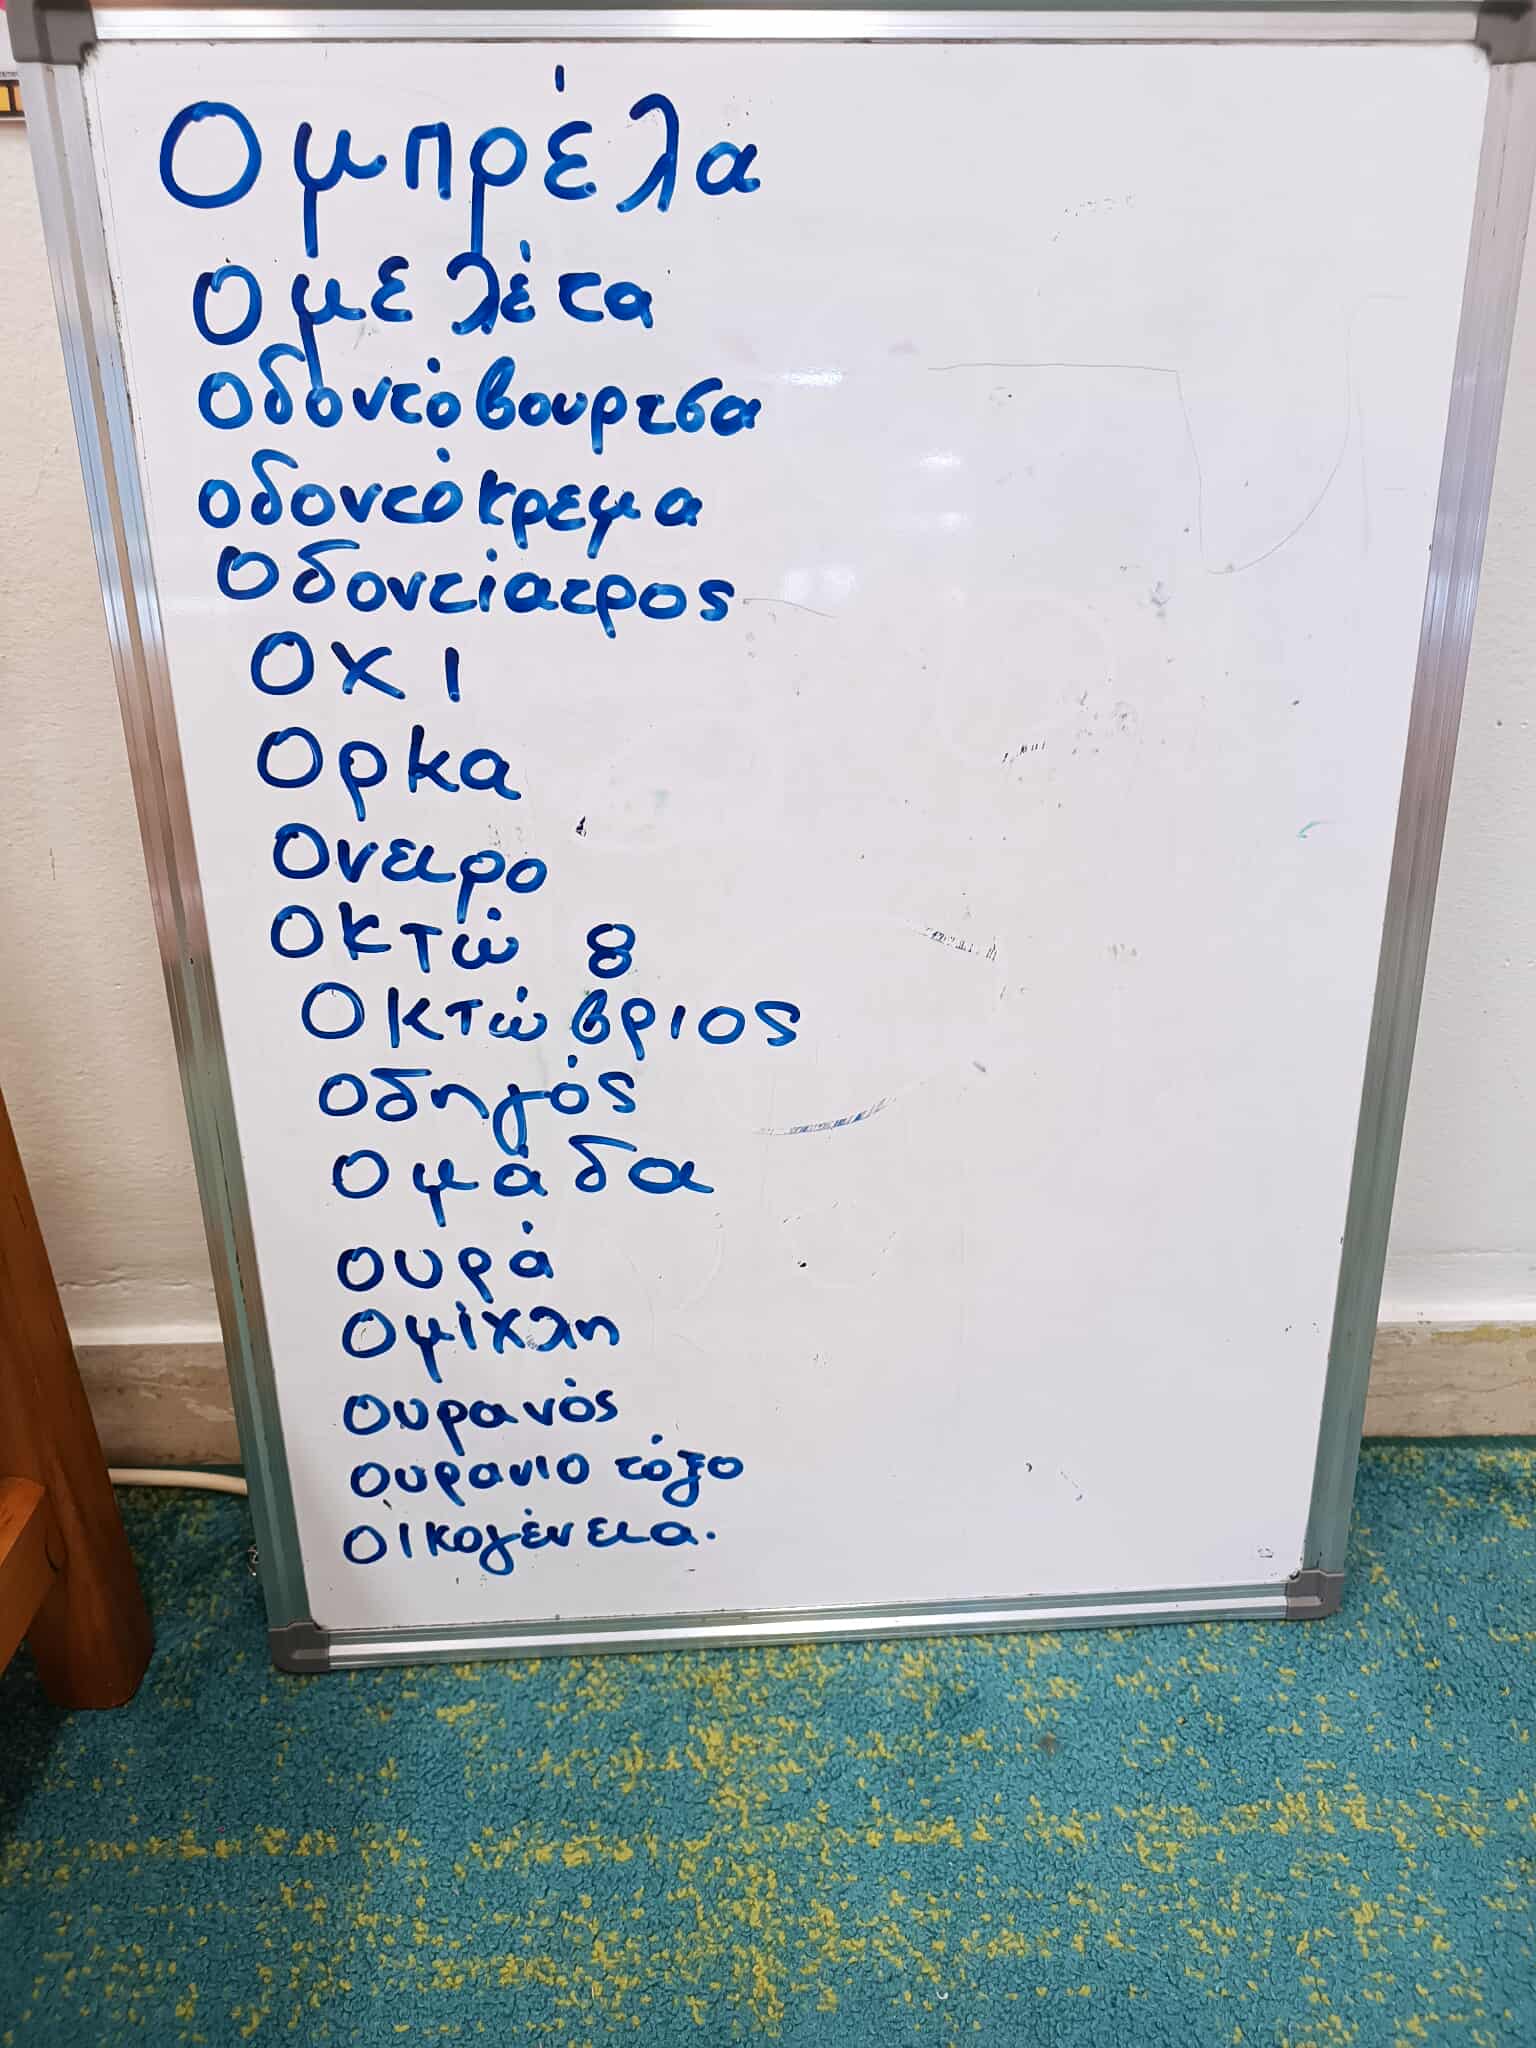 Ομπρέλα
Ομελέτα
Οδοντόβουρτσα
οδοντόκρεμα
Οδοντίατρος
Οχι
Ορκα
Ονειρο
Οκτώ 8
Οκτώβριος
Οδηγός
Ομάδα
ουρά
Ομίχλη
ουρανός
ουρανιο τόξο
οικογένεια.